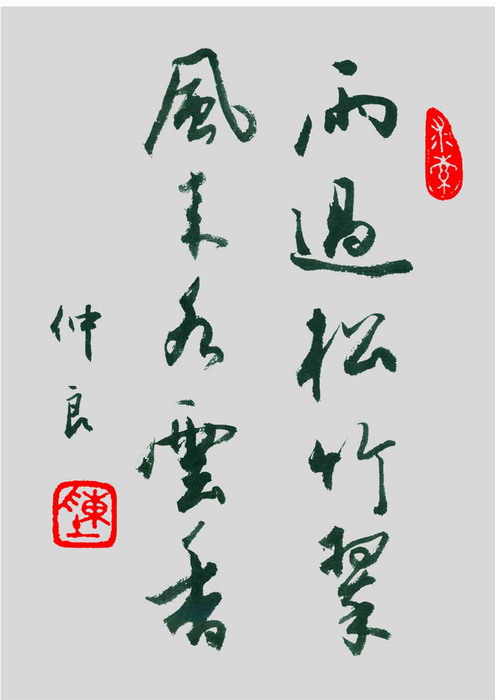 雨過松竹翠
風来水雲香
仲良